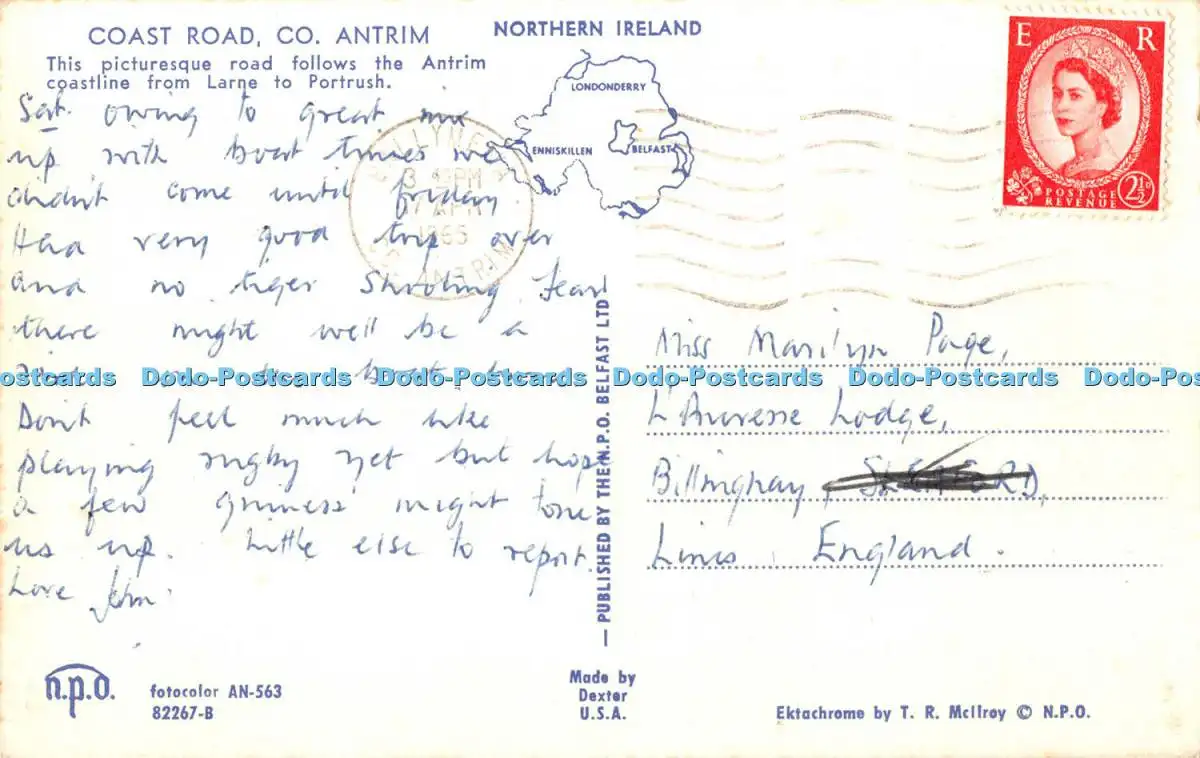 COAST ROAD, CO. ANTRIM
This picturesque road follows the Antrim
coastline from Larne to Portrush.
NORTHERN IRELAND
LONDONDERRY
ENNISKILLEN
BELFAST
E R
POSTAGE
REVENUE
2½D
3 PM
1965
ANTRIM
Sat. owing to great mix
up with boat times we
didn't come until friday
Had very good trip over
and no tiger shooting Fear
there might well be a
boat
Don't feel much like
playing rugby yet but hope
a few guiness might tone
us up. Little else to report.
Love John.
— PUBLISHED BY THE N.P.O. BELFAST LTD —
Miss Marilyn Page,
L'Ancresse Lodge,
Billinghay, SLEAFORD,
Lincs, England.
Dodo-Postcards Dodo-Postcards Dodo-Postcards Dodo-Postcards Dodo-Postcards Dodo-Postcards
n.p.o.
fotocolor AN-563
82267-B
Made by
Dexter
U.S.A.
Ektachrome by T. R. McIlroy © N.P.O.